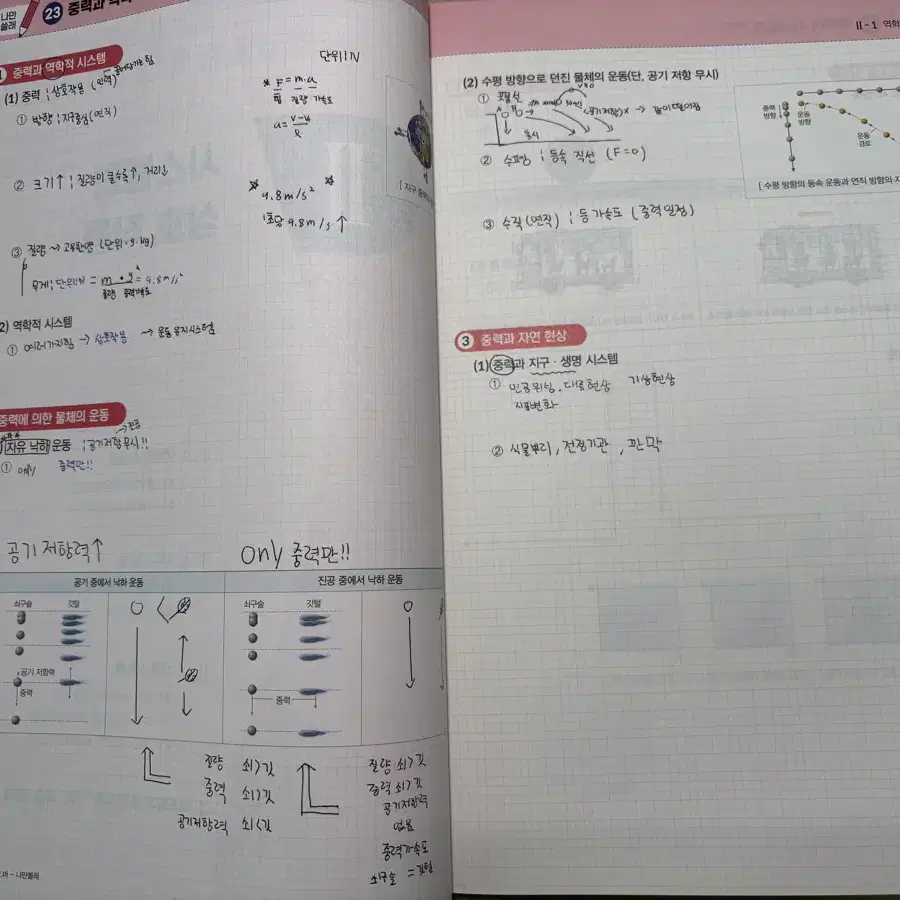 나만
쏠래
23 중력과 역학
중력과 역학적 시스템
단위 N
(1) 중력 ; 상호작용 (만력) 끌어당기는 힘
① 방향 ; 지구중심 (연직)
* F = m·a
힘 질량 가속도
② 크기↑ ; 질량이 클수록↑, 거리↓
9.8m/s²
1초당 9.8m/s↑
③ 질량 → 고유한양 (단위·g·kg)
무게 ; 단위:N = m·g = 9.8m/s²
질량 중력가속도
2) 역학적 시스템
① 여러가지힘 → 상호작용 → 운동 유지시스템
중력에 의한 물체의 운동
→진공
자유 낙하 운동 ; 공기저항무시!!
① only 중력만!!
공기 저항력↑
only 중력만!!
공기 중에서 낙하 운동
진공 중에서 낙하 운동
쇠구슬 깃털
쇠구슬 깃털
공기 저항력
중력
중력
질량 쇠>깃
중력 쇠>깃
공기저항력 쇠<깃
질량 쇠>깃
중력 쇠>깃
공기저항력
없음
중력가속도
쇠구슬 = 깃털
바 - 나만쏠래
II-1 역학
(2) 수평 방향으로 던진 물체의 운동(단, 공기 저항 무시)
① 포물선
A B
(공기저항)X → 같이떨어짐
동시
중력
방향
운동
방향
운동
경로
② 수평 ; 등속 직선 (F=0)
[ 수평 방향의 등속 운동과 연직 방향의 자
③ 수직(연직) ; 등가속도 (중력일정)
3 중력과 자연 현상
(1) 중력과 지구·생명 시스템
① 인공위성, 대류현상 기상현상
지표변화
② 식물뿌리, 전정기관, 판막